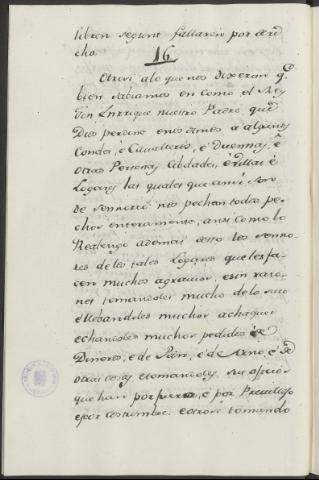 libren segunt fallaren por dere
cho.
16
Otrosi alo que nos dixeron q.
bien sabiamos en como el Rey
Don Enrrique nuestro Padre, que
Dios perdone en los dineros a algunos
Condes, è Cavalleros, è Duennas, è
otras Personas Cibdades, è Villas è
Logares las quales que ansi son
de sennorio nos pechan todos pe-
chos enteramente, ansi como lo
Realengo ademas desto los senno-
res delos tales Logares queles fa-
cen muchos agravios, è sin razo-
nes tomandoles mucho delo suio
è llebandoles muchos achaques
echandoles muchos pedidos è de
Dineros, è de Pan, è de Vino è de
otras cosas, è tomandoles sus oficios
que han por fuero, è por Previllejo
è por costumbre. è otrosi tomando